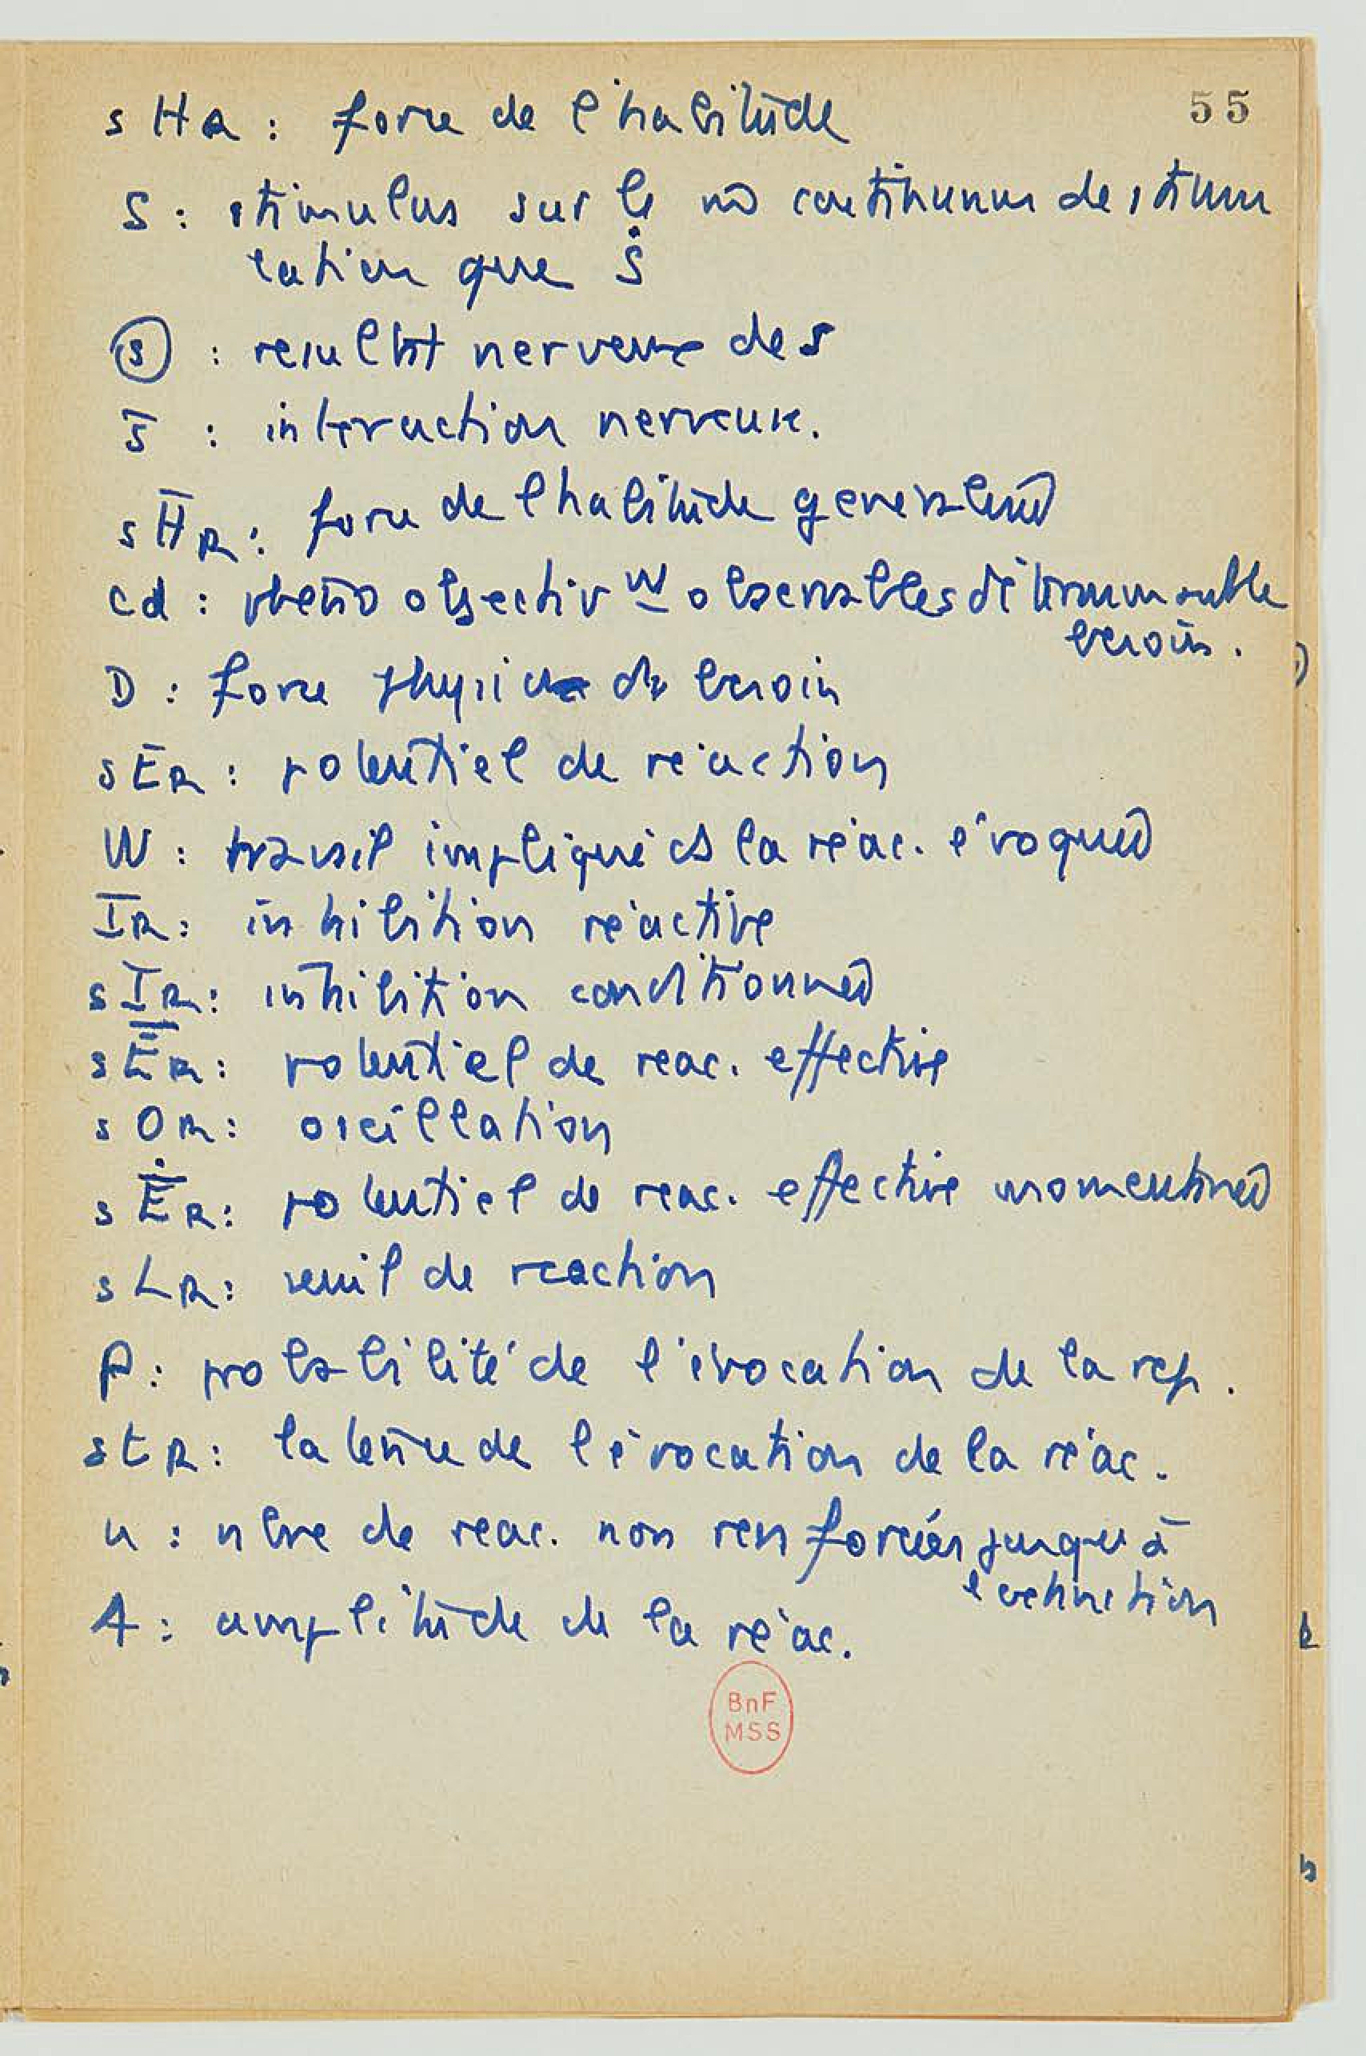 55
sHR : force de l'habitude
S : stimulus sur le m̂ continuum de stimu
lation que Ṡ
ⓢ : result nerveux de s
s̄ : interaction nerveuse.
sH̄R : force de l'habitude generalisée
cd : objectivt observables déterminant le
besoin.
D : force physique du besoin
sER : potentiel de réaction
W : travail impliqué ds la réac. évoquée
IR : inhibition réactive
sIR : inhibition conditionnée
sĒR : potentiel de reac. effective
sOR : oscillation
sĒ̇R : potentiel de reac. effective momentanée
sLR : seuil de reaction
P : probabilité de l'évocation de la rep.
stR : latence de l'évocation de la réac.
n : nbre de reac. non renforcées jusqu'à
l'extinction
A : amplitude de la réac.
BnF
MSS